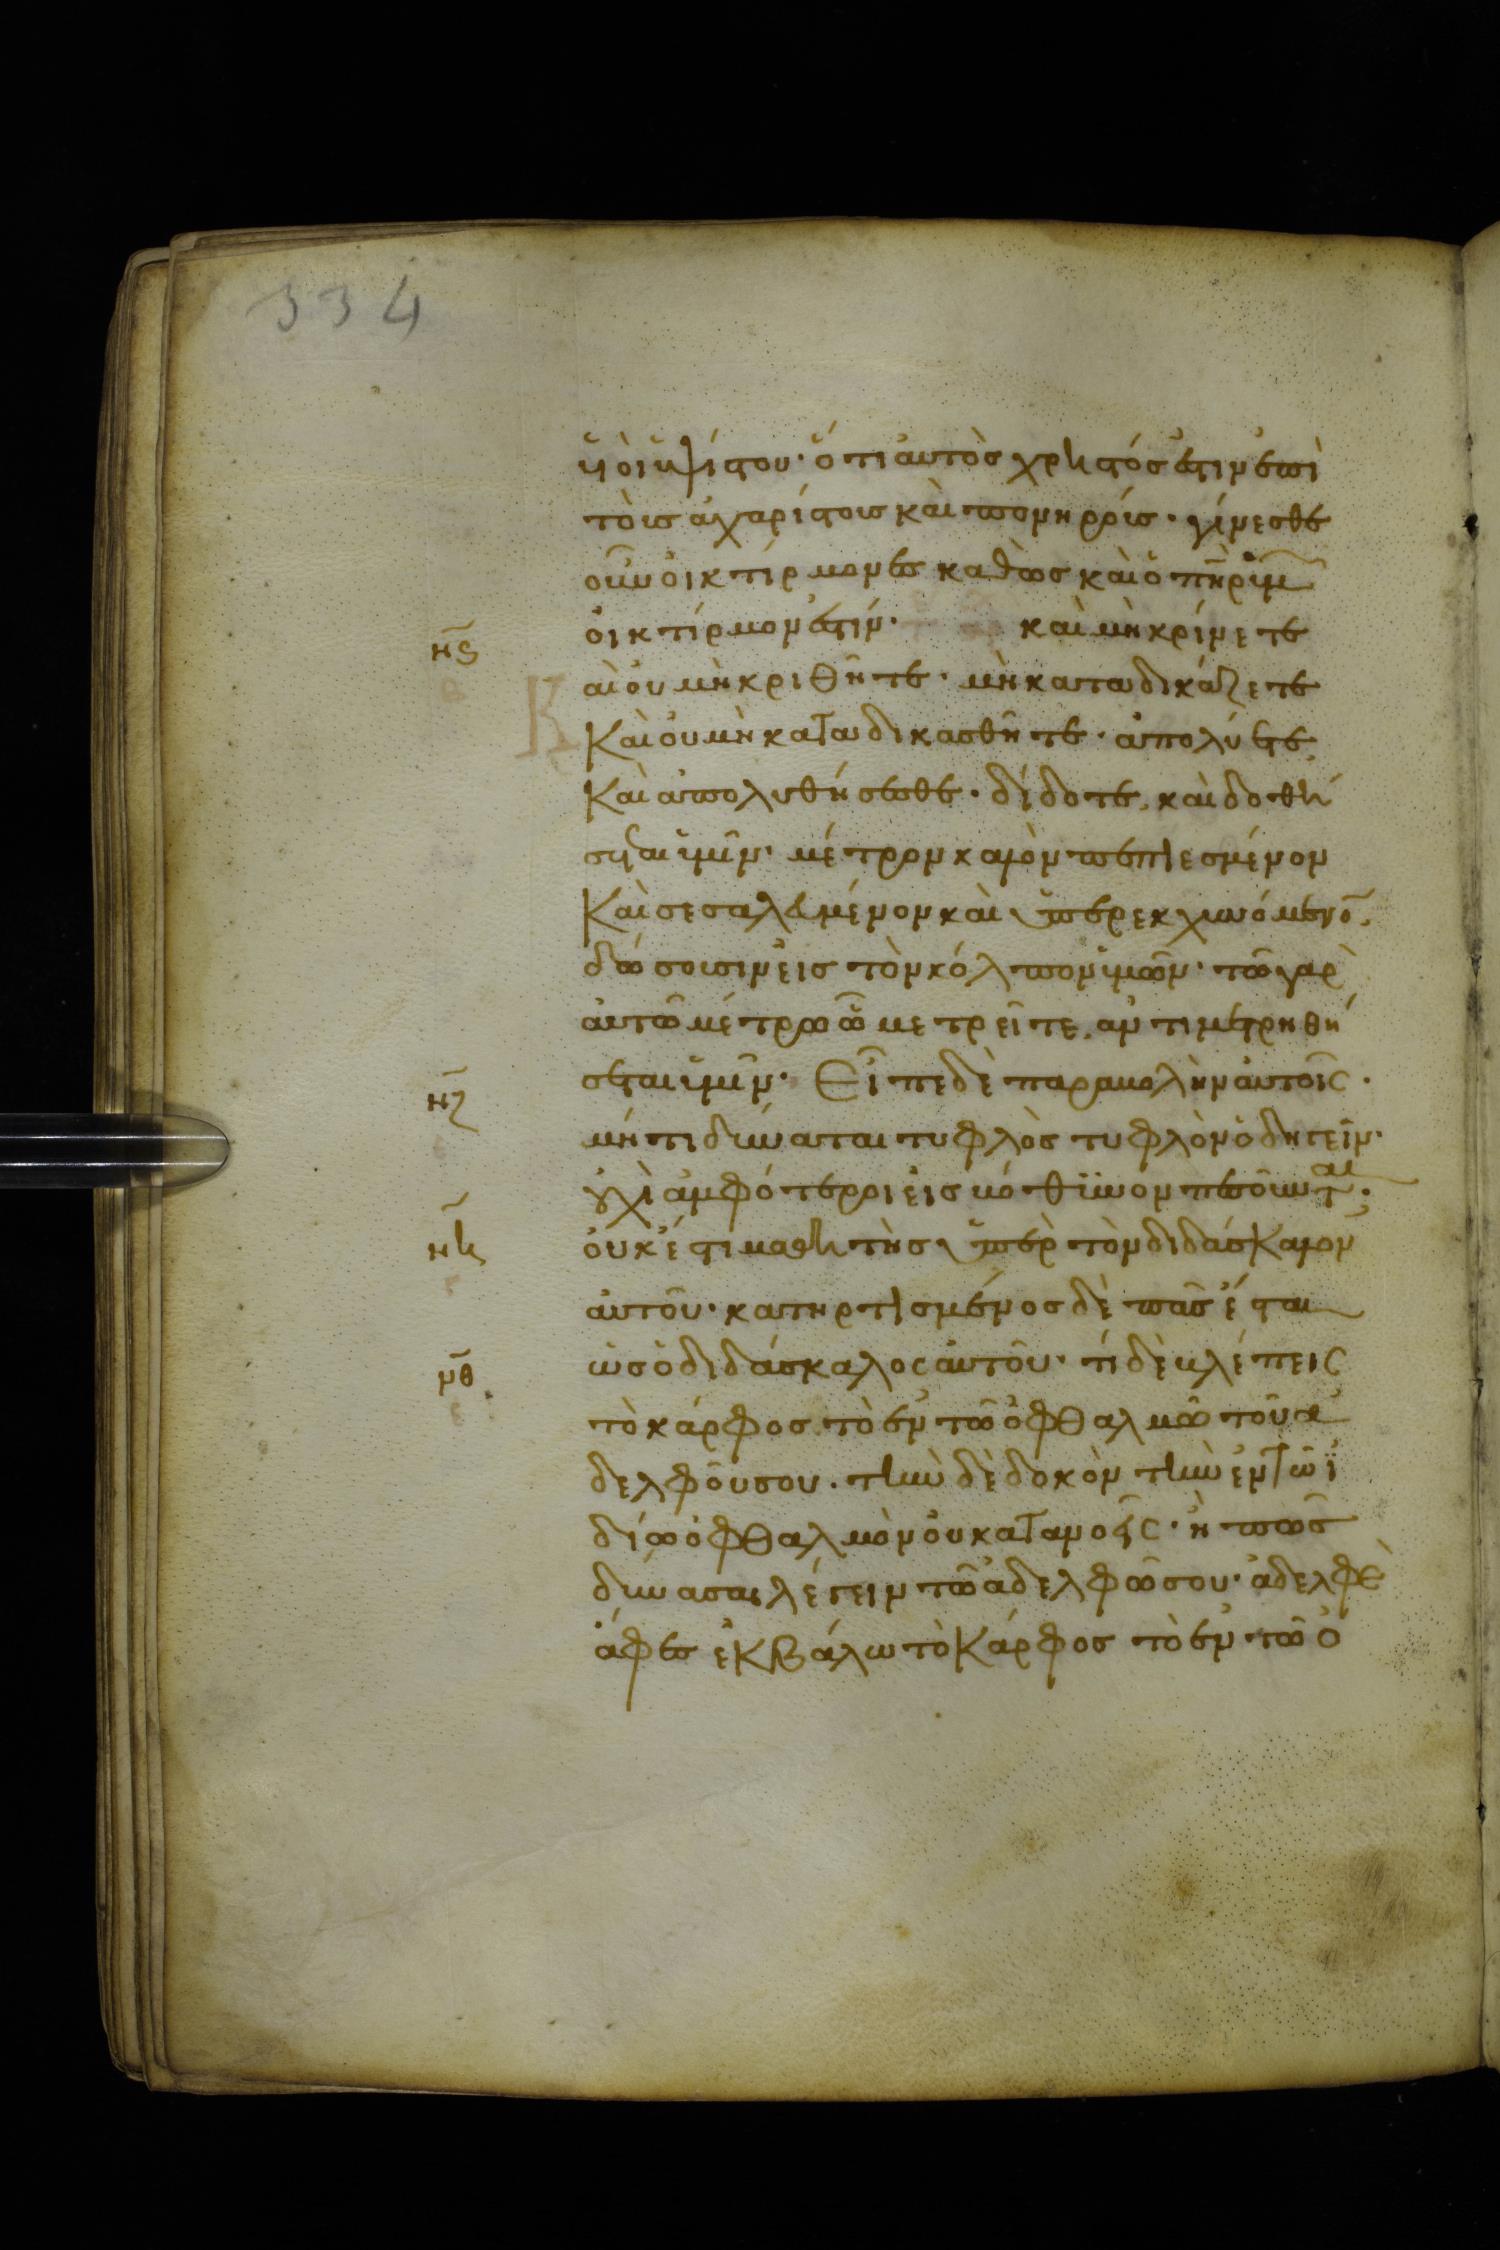 334
ϋἱοὶ ὑψίστου· ὅτι αὐτὸς χρηστός ἐστιν ἐπὶ
τοὶς ἀχαρίστοις καὶ πονηροίς· γίνεσθε
οὖν οἰκτίρμονες καθὼς καὶ ὁ πῆρ ϋμῶ
οἰκτίρμον ἐστίν· καὶ μὴ κρίνετε
αὶ οὐ μὴ κριθῆτε· μὴ καταδικάζετε
Καὶ οὐ μὴ καταδικασθῆτε· ἀπολύετε
Καὶ ἀπολυθήσεσθε· δίδοτε, καὶ δοθή
σεται ϋμῖν· μέτρον καλὸν πεπιεσμένον
Καὶ σεσαλευμένον καὶ ὑπερεκχυνόμενο̄,
δώσουσιν εἰς τὸν κόλπον ϋμῶν· τῶ γαρ
αὐτῶ μέτρω ὧ μετρεῖτε, ἀντιμετρηθή
σεται ϋμῖν· Εἶπε δὲ παραβολὴν αὐτοῖς·
μήτι δύναται τυφλὸς τυφλὸν ὁδηγεῖν·
οὐχὶ ἀμφότεροι εἰς βόθϋνον πεσοῦνται·
οὐκ ἔστι μαθητὴς ὑπὲρ τὸν διδάσκαλον
αὐτοῦ· κατηρτισμένος δὲ πᾶς ἔσται
ὡς ὁ διδάσκαλος αὐτοῦ· τί δὲ βλέπεις
τὸ κάρφος τὸ ἐν τῶ ὀφθαλμῶ τοῦ ἀ
δελφοῦ σου· τὴν δὲ δοκὸν τὴν ἐν τῶ ἰ
δίω ὀφθαλμὸν οὐ κατανοεῖς· ἢ πῶς
δύνασαι λέγειν τῶ ἀδελφῶ σου· ἀδελφὲ
ἄφες ἐκβάλω τὸ Κάρφος τὸ ἐν τῶ ὀ
νς̄
νζ̄
νη̄
νθ̄